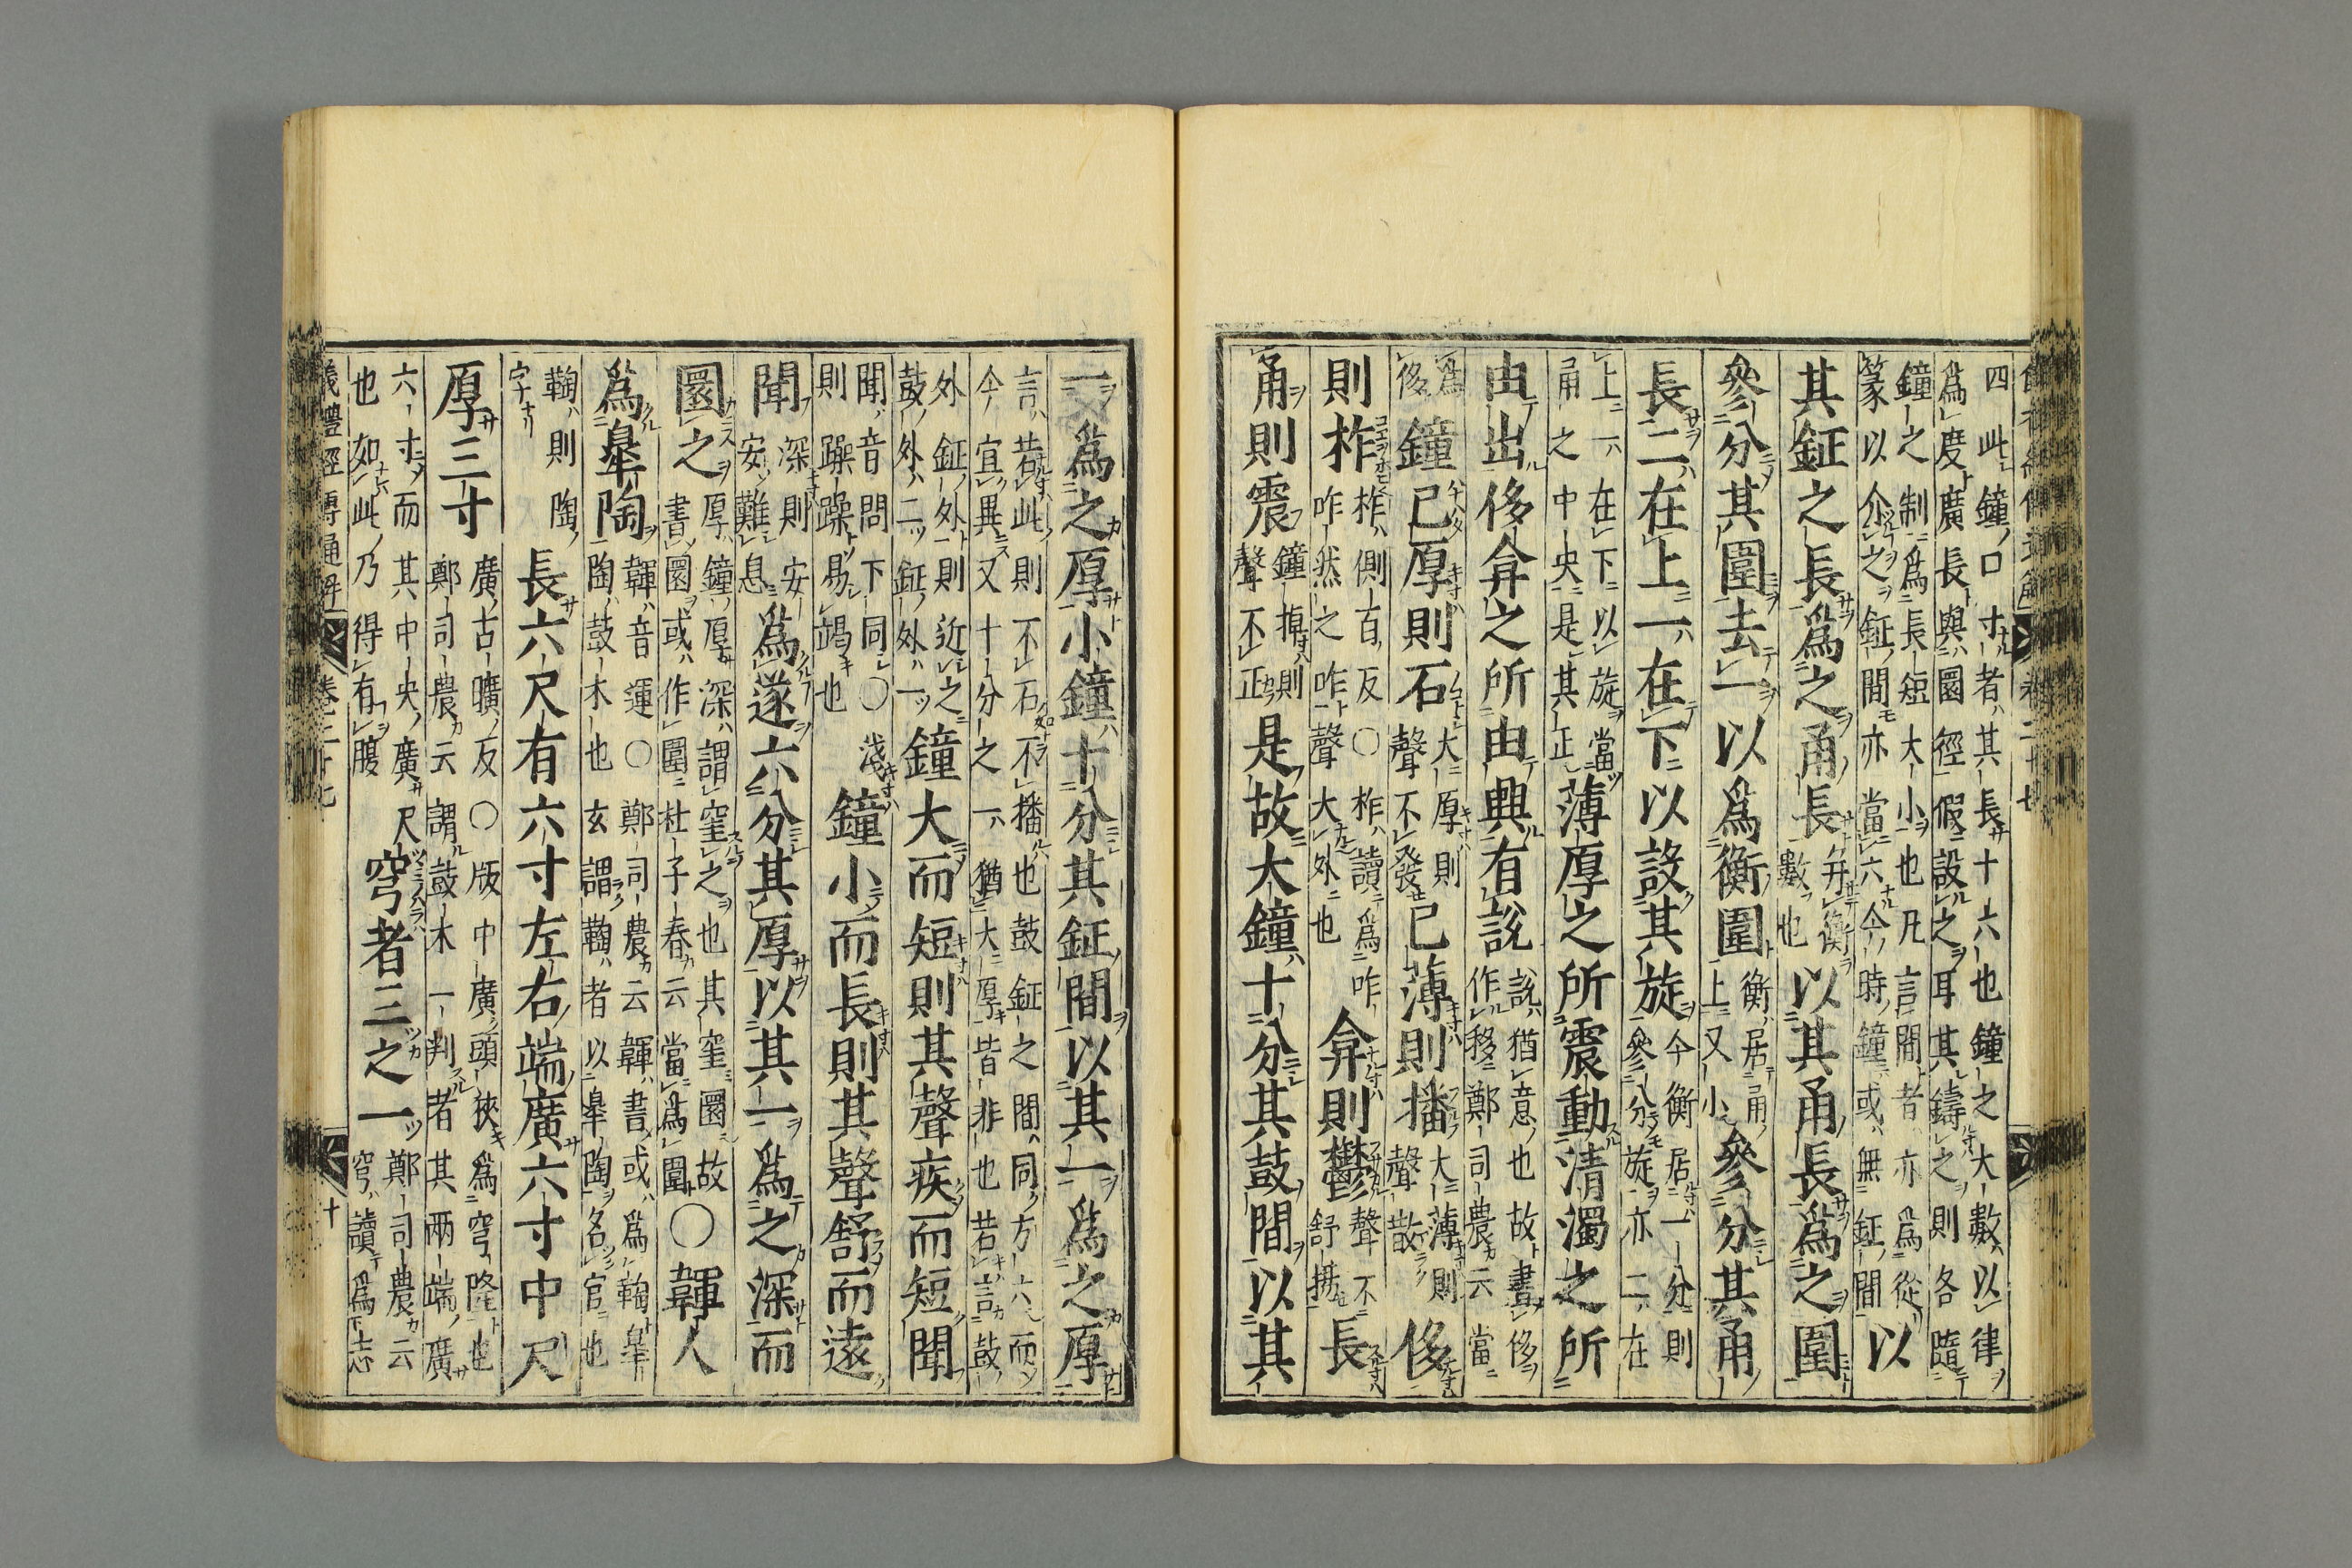 四此鐘口寸者其長十六也鐘之大數以律
爲度廣長與圜徑假設之耳其鑄之則各隨
鐘之制爲長短大小也凡言間者亦爲從
篆以介之鉦間亦當六今時鐘或無鉦間
以
其鉦之長爲之甬長
并衡
數也
以其甬長爲之圍
參分其圍去一以爲衡圍
衡居甬
上又小
參分其甬
長二在上一在下以設其旋
今衡居一分則
參分旋亦二在
上一在下以旋當
甬之中央是其正
薄厚之所震動清濁之所
由出侈弇之所由興有說
說猶意也故書侈
作移鄭司農云當
爲
侈
鐘已厚則石
大厚則
聲不發
已薄則播
大薄則
聲散
侈
則柞
柞側百反○柞讀爲咋
咋然之咋聲大外也
弇則鬱
聲不
舒揚
長
甬則震
鐘掉則
聲不正
是故大鐘十分其鼓間以其
一爲之厚小鐘十分其鉦間以其一爲之厚
言若此則不石不播也鼓鉦之間同方六而
今宜異又十分之一猶大厚皆非也若言鼓
外鉦外則近之
鼓外二鉦外一
鐘大而短則其聲疾而短聞
聞音問下同○淺
則躁躁易竭也
鐘小而長則其聲舒而遠
聞
深則安
安難息
爲遂六分其厚以其一爲之深而
圜之
厚鐘厚深謂窐之也其窐圜故
書圜或作圍杜子春云當爲圜
○韗人
爲皋陶
韗音運○鄭司農云韗書或爲鞠皋
陶鼓木也玄謂鞠者以皋陶名官也
鞠則陶
字
長六尺有六寸左右端廣六寸中尺
厚三寸
廣古曠反○版中廣頭狹爲穹隆也
鄭司農云謂鼓木一判者其兩端廣
六寸而其中央廣尺
也如此乃得有腹
穹者三之一
鄭司農云
穹讀爲志
儀禮經傳通解 卷二十七 十